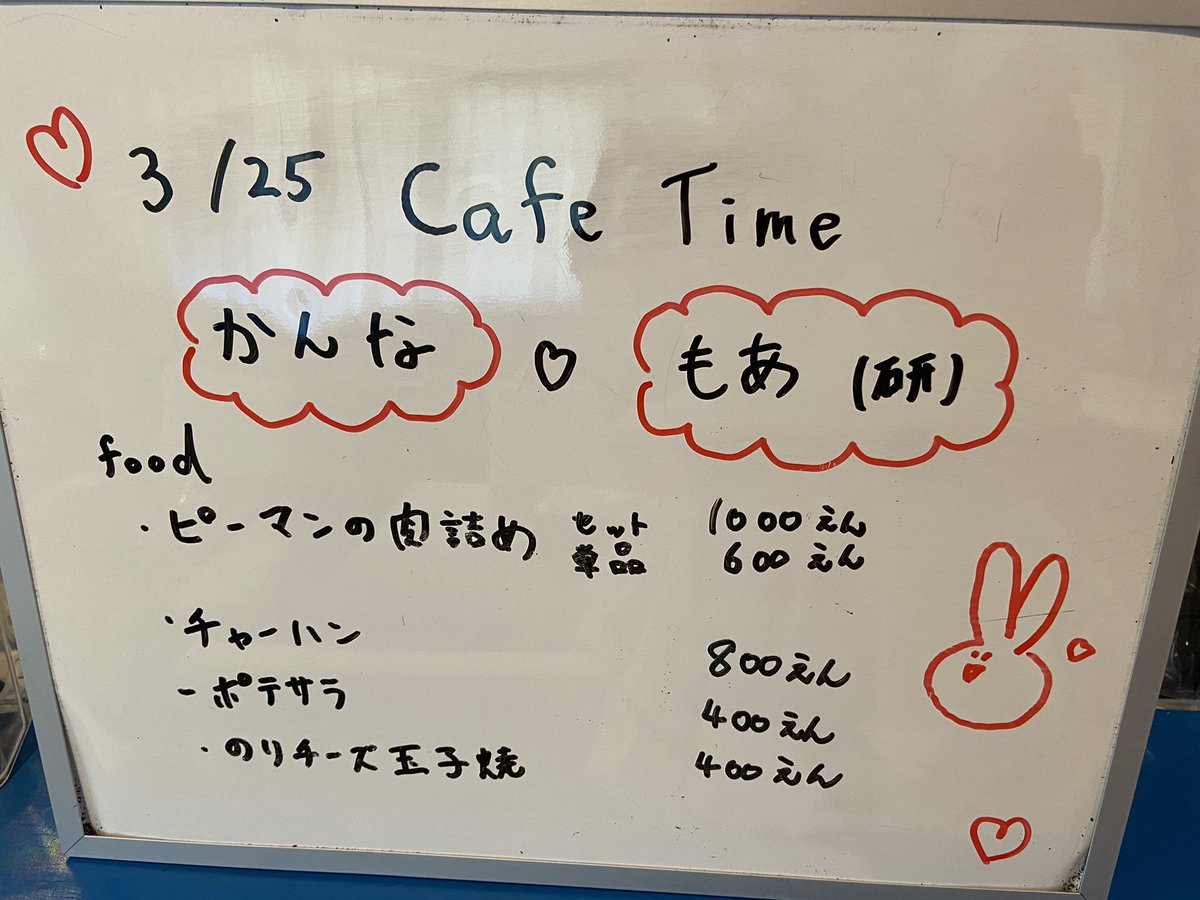 3/25 Cafe Time
かんな ♡ もあ (研)
food
・ピーマンの肉詰め セット 1000えん
単品 600えん
・チャーハン 800えん
-ポテサラ 400えん
・のりチーズ玉子焼 400えん